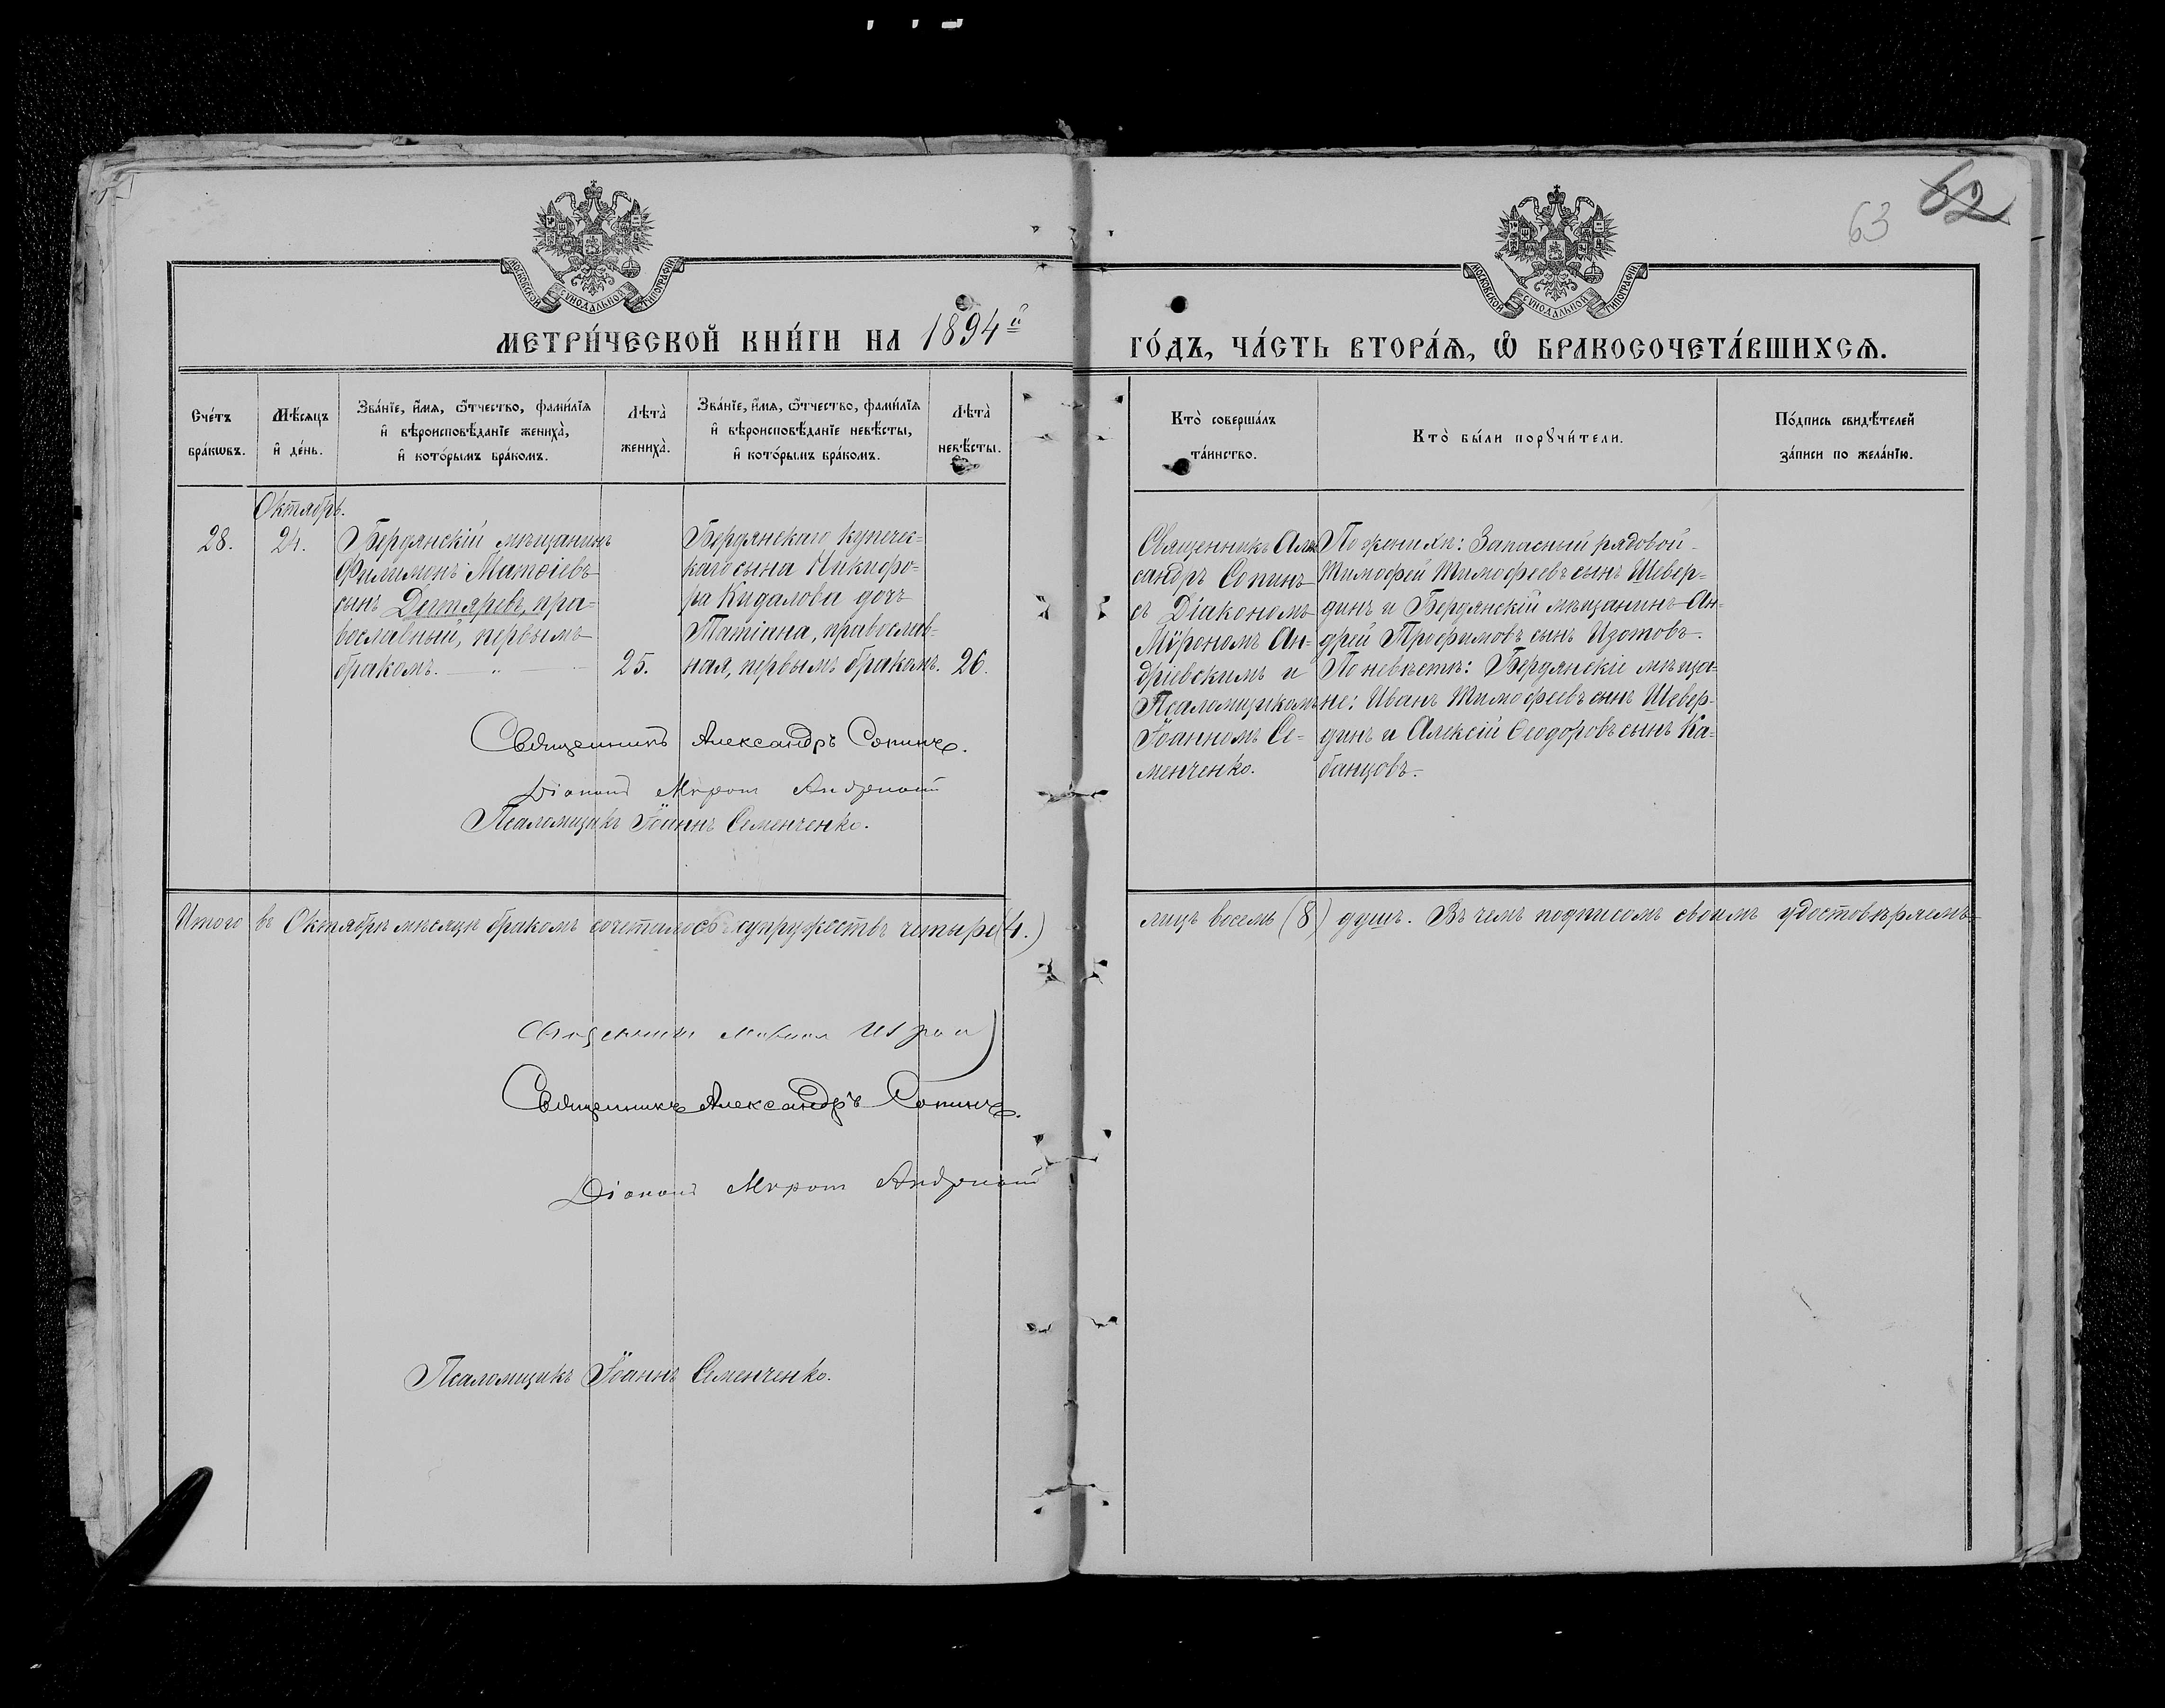 63
62
МОСКОВСКОЙ СѴНОДАЛЬНОЙ ТИПОГРАФІИ
МОСКОВСКОЙ СѴНОДАЛЬНОЙ ТИПОГРАФІИ
МЕТРИ́ЧЕСКОЙ КНИ́ГИ НА 1894й
ГО́ДЪ, ЧА́СТЬ ВТОРА́Ѧ, Ѽ БРАКОСОЧЕТА́ВШИХСѦ.
Сче́тъ
бра́кѡвъ.
Мѣ́сяцъ
и҆ де́нь.
Зва́нїе, и҆́мѧ, ѻ҆́тчество, фами́лїѧ
и҆ вѣроисповѣ́данїе жениха̀,
и҆ кото́рымъ бра́комъ.
Лѣта̀
жениха̀.
Зва́нїе, и҆́мѧ, ѻ҆́тчество, фами́лїѧ
и҆ вѣроисповѣ́данїе невѣ́сты,
и҆ кото́рымъ бра́комъ.
Лѣта̀
невѣ́сты.
Кто̀ соверша́лъ
та́инство.
Кто̀ бы́ли порꙋчи́тели.
По́дпись свидѣ́телей
за́писи по жела́нїю.
Октябрь.
28.
24.
Бердянскій мѣщанинъ
Филимонъ Матѳіевъ
сынъ Дегтяревъ, пра-
вославный, первымъ
бракомъ.
25.
Бердянскаго купечес-
каго сына Никифо-
ра Кидалова дочь
Татіана, православ-
ная, первымъ бракомъ.
26.
Священникъ Алек
сандръ Сопинъ
съ Діакономъ
Мѵрономъ Ан-
дріевскимъ и
Псаломщикомъ
Іоанномъ Се-
менченко.
По женихѣ: Запасный рядовой
Тимофей Тимофеевъ сынъ Шевер-
динъ и Бердянскій мѣщанинъ Ан-
дрей Трофимовъ сынъ Изотовъ.
По невѣстѣ: Бердянскіе мѣща-
не: Иванъ Тимофеевъ сынъ Шевер-
динъ и Алексій Ѳеодоровъ сынъ Ка-
банцовъ.
Священникъ Александръ Сопинъ.
Діаконъ Мѵронъ
Псаломщикъ Іоаннъ Семенченко.
Итого въ Октябрѣ мѣсяцѣ бракомъ сочеталось супружествъ четыре (4.)
лицъ восемь (8) душъ. Въ чемъ подписомъ своимъ удостовѣряемъ
Священникъ
Священникъ Александръ Сопинъ.
Діаконъ Мѵронъ
Псаломщикъ Іоаннъ Семенченко.